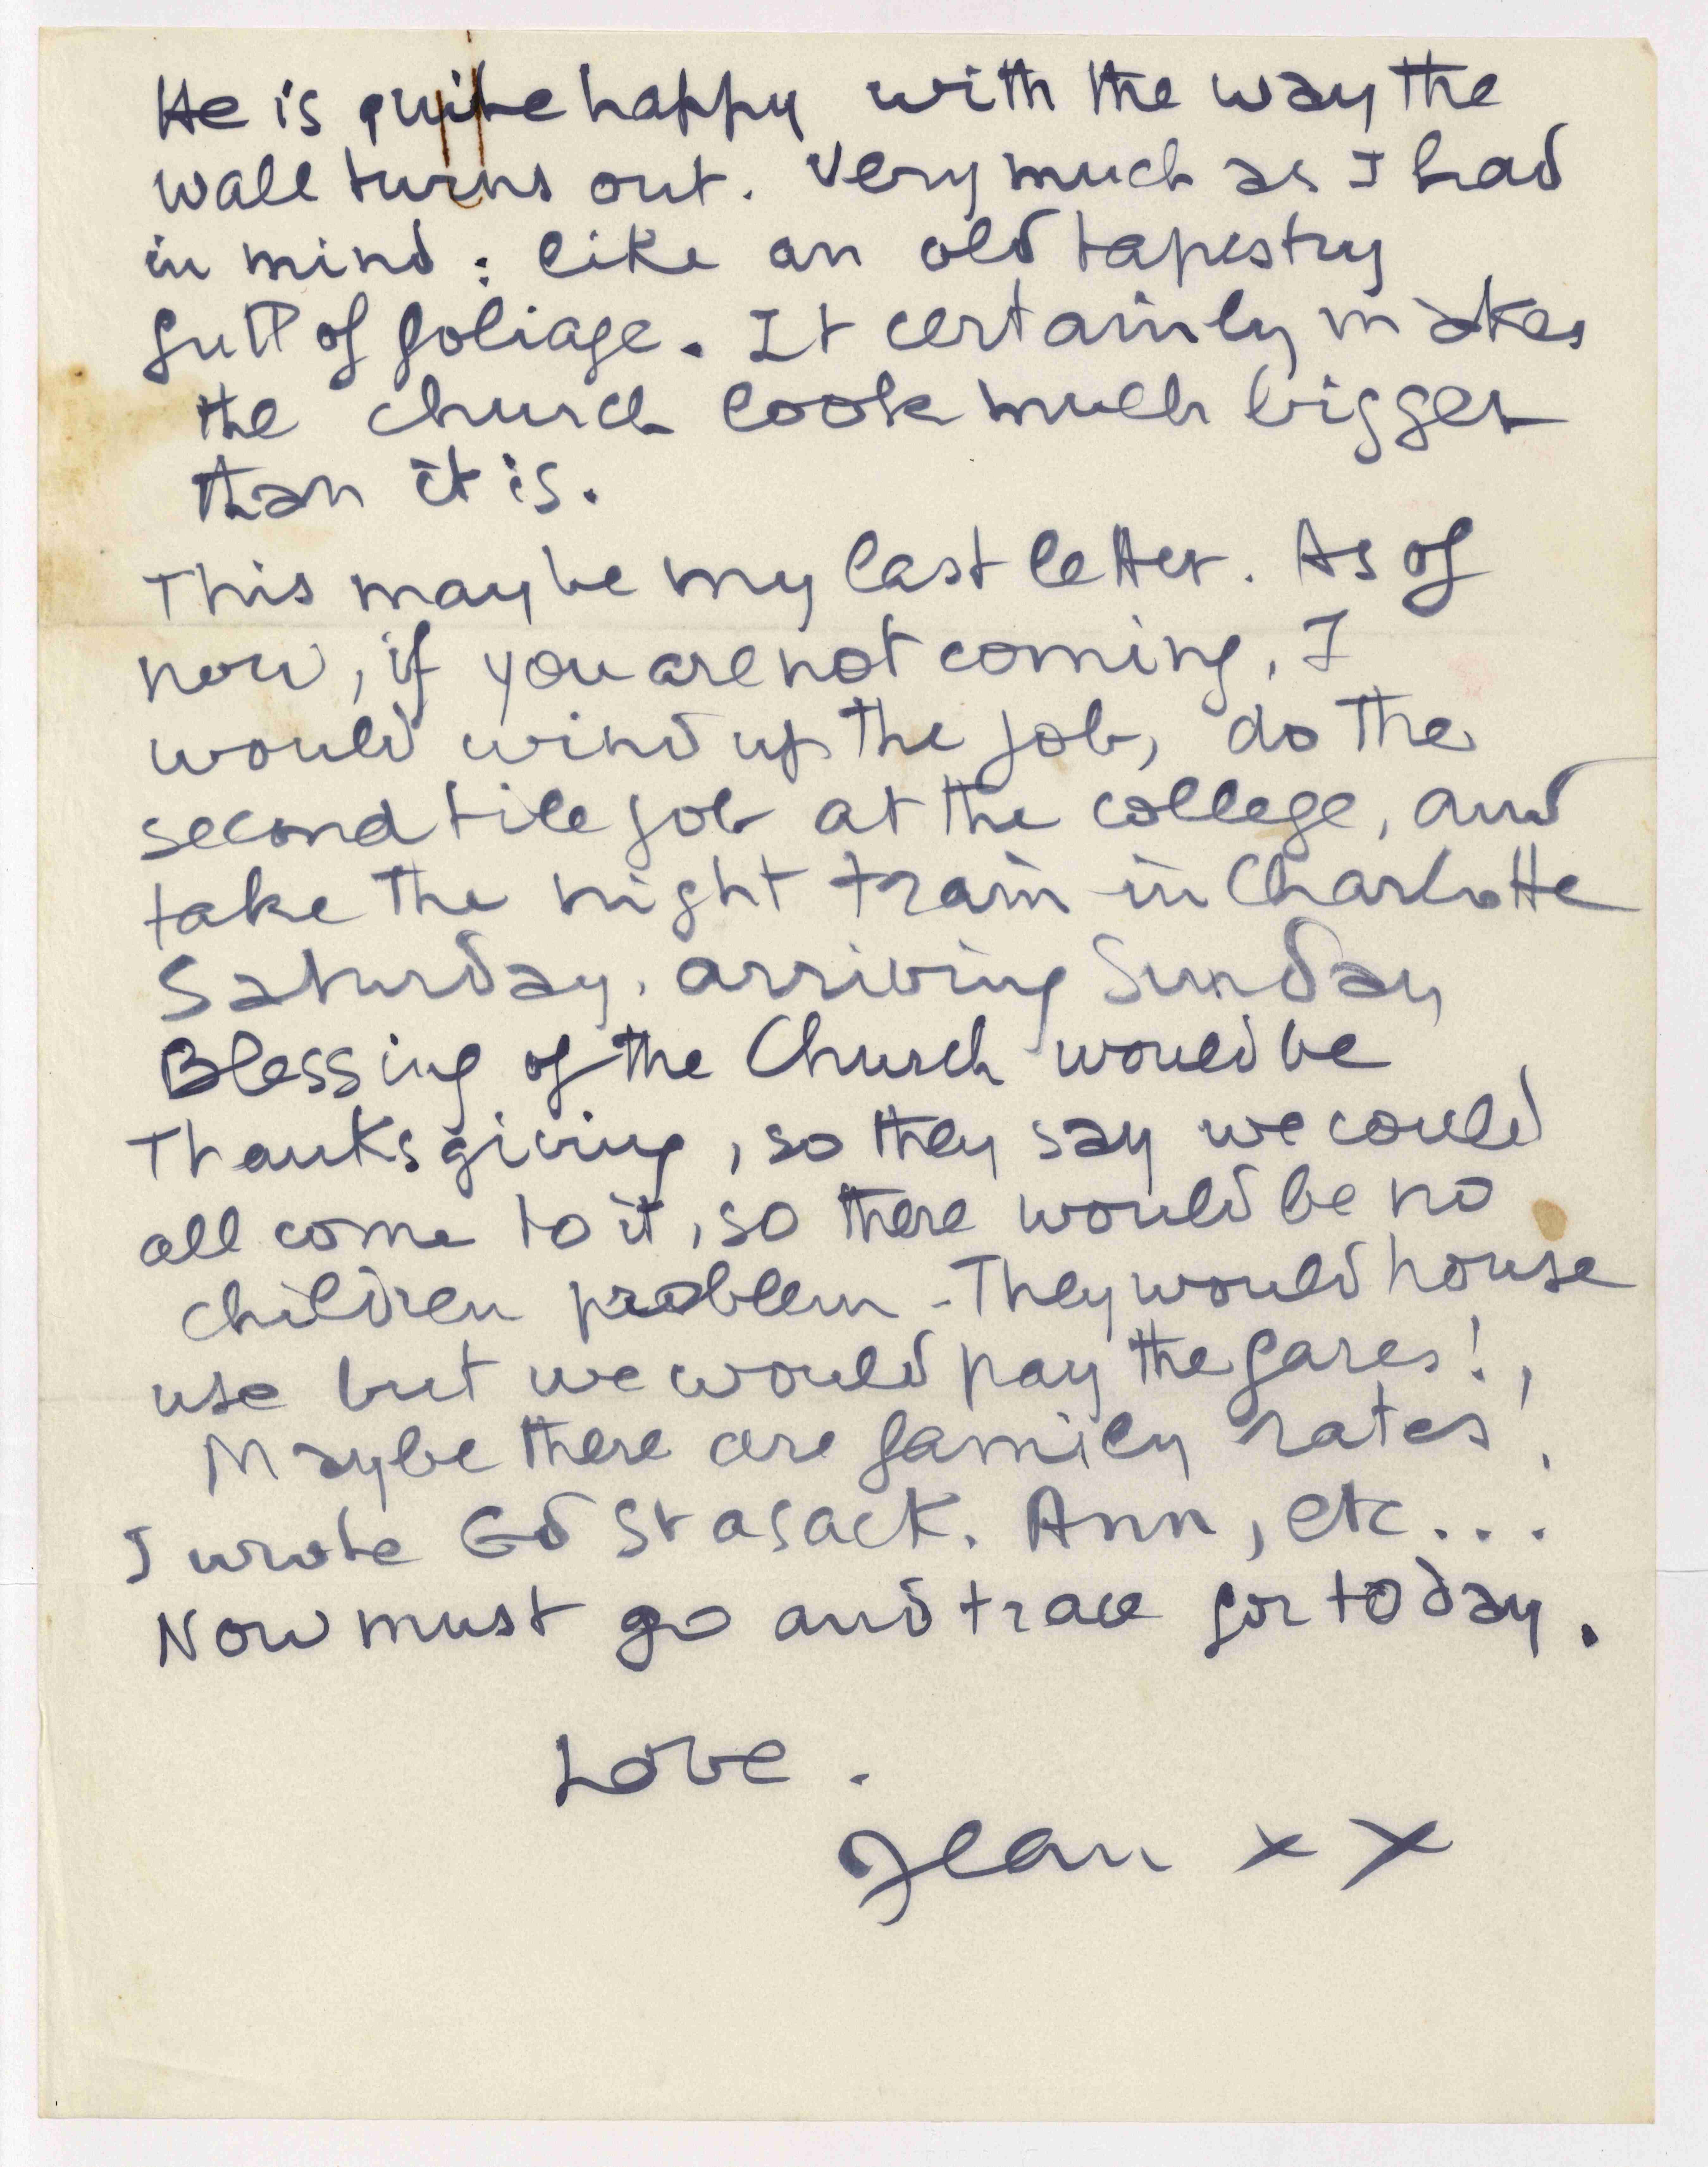 He is quite happy with the way the
wall turns out. Very much as I had
in mind : like an old tapestry
full of foliage. It certainly makes
the church look much bigger
than it is.
This may be my last letter. As of
now, if you are not coming, I
would wind up the job, do the
second tile job at the college, and
take the night train in Charlotte
Saturday. arriving Sunday
Blessing of the Church would be
Thanksgiving, so they say we could
all come to it, so there would be no
children problem - They would house
use but we would pay the fares!,
Maybe there are family rates!
I wrote Ed Stasack. Ann, etc...
Now must go and trace for today.
Love.
Jean x x